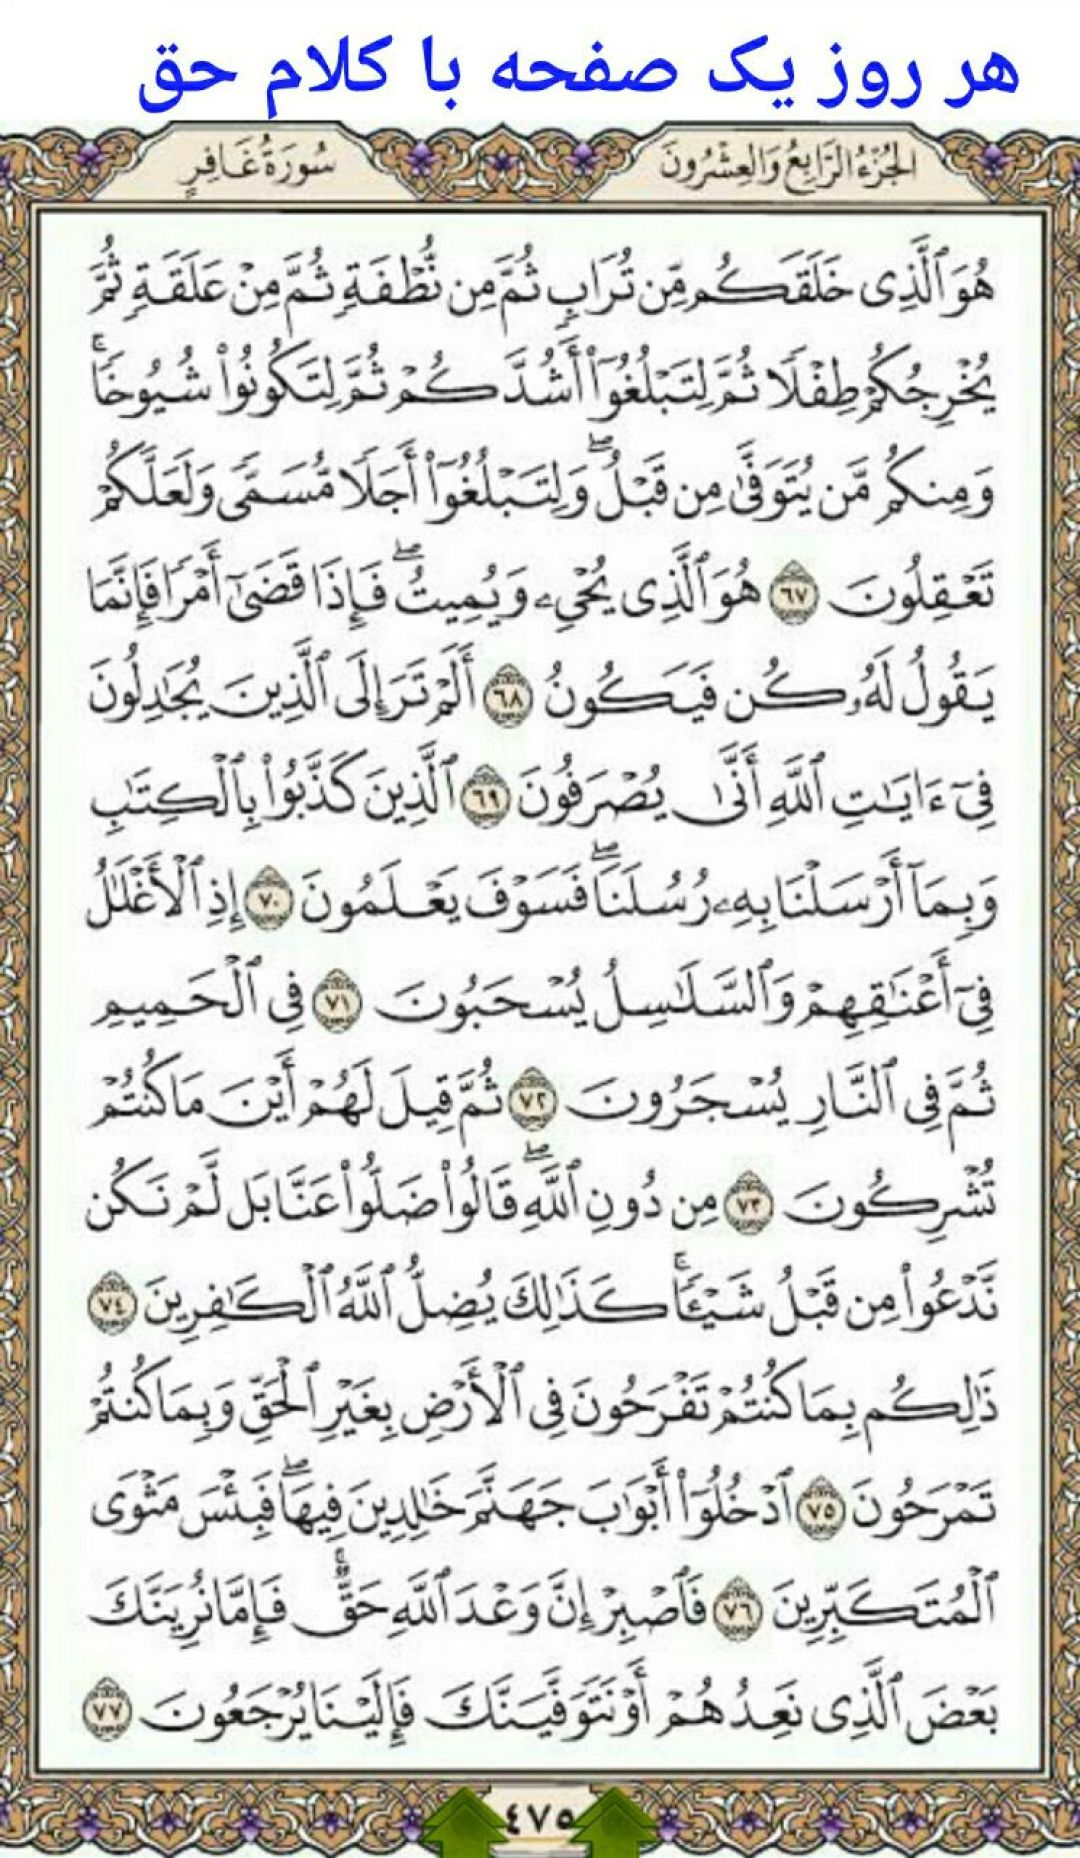 هر روز یک صفحه با کلام حق
الجُزْءُ الرَّابِعُ وَالعِشْرُونَ
سُورَةُ غَافِرٍ
هُوَ ٱلَّذِى خَلَقَكُم مِّن تُرَابٍ ثُمَّ مِن نُّطْفَةٍ ثُمَّ مِنْ عَلَقَةٍ ثُمَّ
يُخْرِجُكُمْ طِفْلًا ثُمَّ لِتَبْلُغُوٓا۟ أَشُدَّكُمْ ثُمَّ لِتَكُونُوا۟ شُيُوخًا ۚ
وَمِنكُم مَّن يُتَوَفَّىٰ مِن قَبْلُ ۖ وَلِتَبْلُغُوٓا۟ أَجَلًا مُّسَمًّى وَلَعَلَّكُمْ
تَعْقِلُونَ ٦٧ هُوَ ٱلَّذِى يُحْىِۦ وَيُمِيتُ ۖ فَإِذَا قَضَىٰٓ أَمْرًا فَإِنَّمَا
يَقُولُ لَهُۥ كُن فَيَكُونُ ٦٨ أَلَمْ تَرَ إِلَى ٱلَّذِينَ يُجَٰدِلُونَ
فِىٓ ءَايَٰتِ ٱللَّهِ أَنَّىٰ يُصْرَفُونَ ٦٩ ٱلَّذِينَ كَذَّبُوا۟ بِٱلْكِتَٰبِ
وَبِمَآ أَرْسَلْنَا بِهِۦ رُسُلَنَا ۖ فَسَوْفَ يَعْلَمُونَ ٧٠ إِذِ ٱلْأَغْلَٰلُ
فِىٓ أَعْنَٰقِهِمْ وَٱلسَّلَٰسِلُ يُسْحَبُونَ ٧١ فِى ٱلْحَمِيمِ
ثُمَّ فِى ٱلنَّارِ يُسْجَرُونَ ٧٢ ثُمَّ قِيلَ لَهُمْ أَيْنَ مَا كُنتُمْ
تُشْرِكُونَ ٧٣ مِن دُونِ ٱللَّهِ ۖ قَالُوا۟ ضَلُّوا۟ عَنَّا بَل لَّمْ نَكُن
نَّدْعُوا۟ مِن قَبْلُ شَيْـًٔا ۚ كَذَٰلِكَ يُضِلُّ ٱللَّهُ ٱلْكَٰفِرِينَ ٧٤
ذَٰلِكُم بِمَا كُنتُمْ تَفْرَحُونَ فِى ٱلْأَرْضِ بِغَيْرِ ٱلْحَقِّ وَبِمَا كُنتُمْ
تَمْرَحُونَ ٧٥ ٱدْخُلُوٓا۟ أَبْوَٰبَ جَهَنَّمَ خَٰلِدِينَ فِيهَا ۖ فَبِئْسَ مَثْوَى
ٱلْمُتَكَبِّرِينَ ٧٦ فَٱصْبِرْ إِنَّ وَعْدَ ٱللَّهِ حَقٌّ ۚ فَإِمَّا نُرِيَنَّكَ
بَعْضَ ٱلَّذِى نَعِدُهُمْ أَوْ نَتَوَفَّيَنَّكَ فَإِلَيْنَا يُرْجَعُونَ ٧٧
٤٧٥